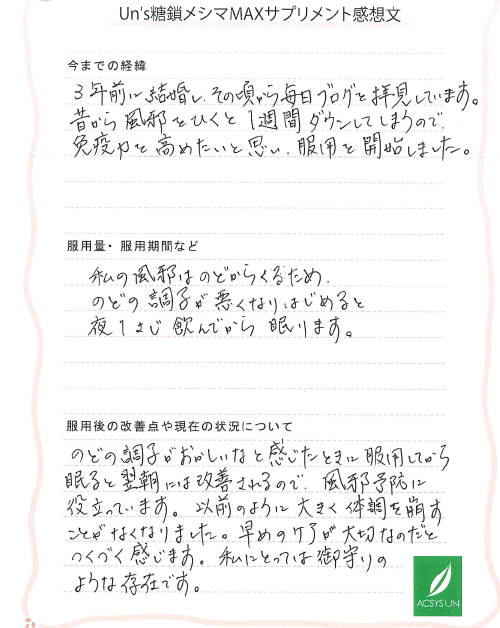 Un's糖鎖メシマMAXサプリメント感想文
今までの経緯
3年前に結婚し、その頃から毎日ブログを拝見しています。
昔から風邪をひくと1週間ダウンしてしまうので、
免疫力を高めたいと思い、服用を開始しました。
服用量・服用期間など
私の風邪はのどからくるため、
のどの調子が悪くなりはじめると
夜1さじ飲んでから眠ります。
服用後の改善点や現在の状況について
のどの調子がおかしいなと感じたときに服用してから
眠ると翌朝には改善されるので、風邪予防に
役立っています。以前のように大きく体調を崩す
ことがなくなりました。早めのケアが大切なのだと
つくづく感じます。私にとっては御守りの
ような存在です。
ACSYS UN